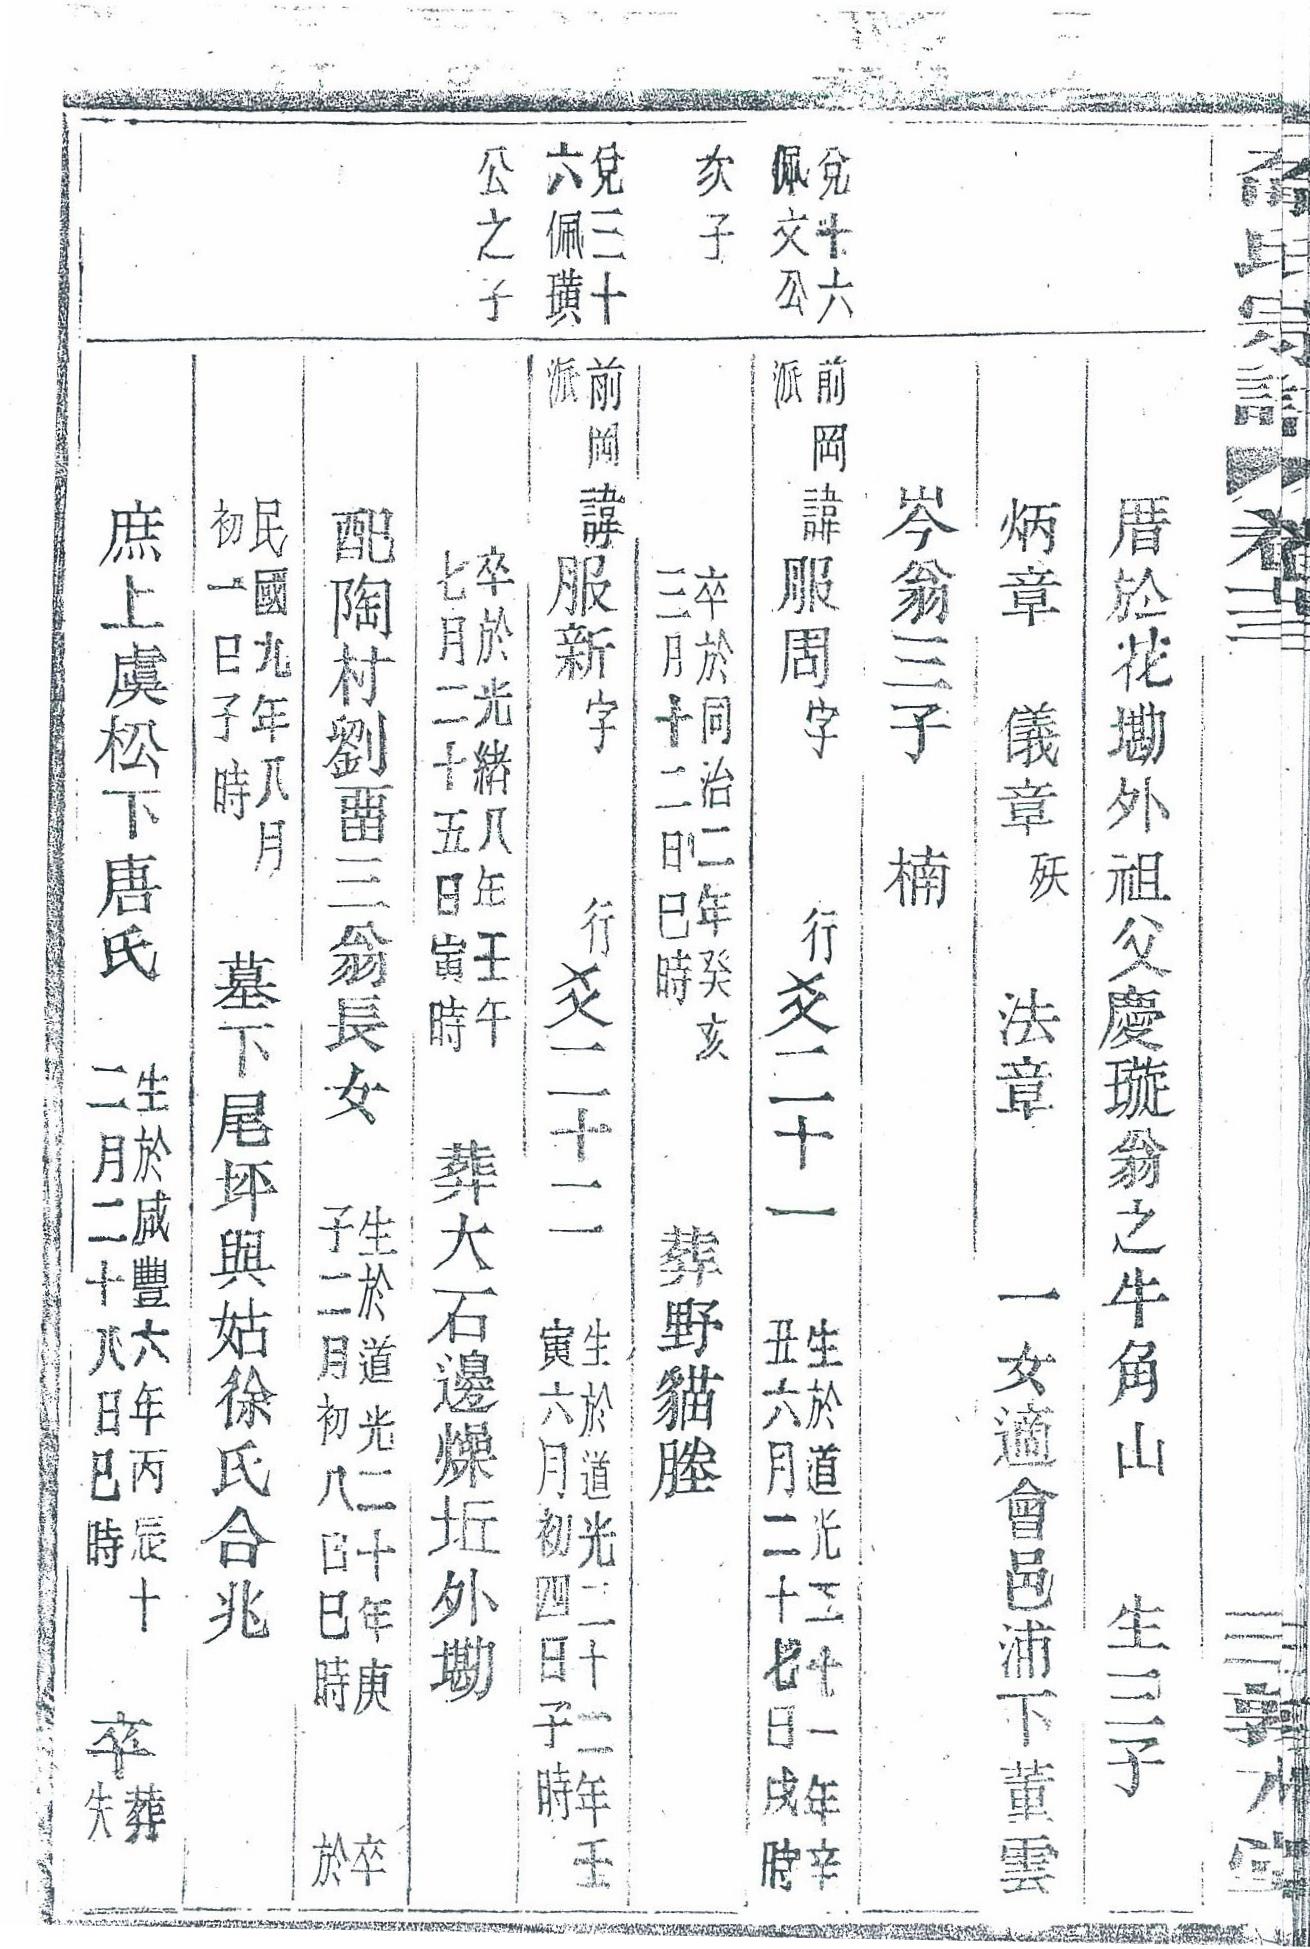 氏宗譜 卷三
厝於花墈外祖父慶璇翁之牛角山 生三子
炳章 儀章殀 法章 一女適會邑浦下董雲
岑翁三子 楠
兌十六佩文公
次子
前岡派諱服周字 行爻二十一 生於道光二十一年辛丑六月二十七日戌時
卒於同治二年癸亥三月十二日巳時 葬野貓塍
兌三十六佩璜
公之子
前岡派諱服新字 行爻二十二 生於道光二十二年壬寅六月初四日子時
卒於光緒八年壬午七月二十五日寅時 葬大石邊燥坵外墈
配陶村劉畱三翁長女 生於道光二十年庚子二月初八日巳時 卒於
民國九年八月初一日子時 墓下尾坪與姑徐氏合兆
庶上虞松下唐氏 生於咸豐六年丙辰十二月二十八日巳時 卒葬失